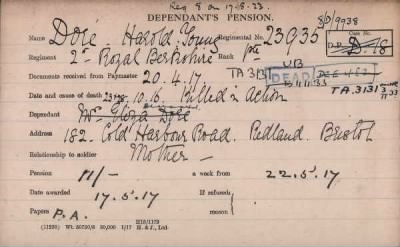 Req 8 on 17-8-33.
DEPENDANT'S PENSION. 8/D/9938
Name Doré Harold Young Regimental No. 23935 Case No.
Regiment 2nd Royal Berkshire Rank Pte D.P. D.18
Documents received from Paymaster 20.4.17. TA 313 UB DEAD
Date and cause of death 10.16. Killed in Action TA.3131
Dependant Mrs Eliza Doré
Address 182 Cold Harbour Road. Redland. Bristol
Relationship to soldier Mother
Pension 11/- a week from 22.5.17
Date awarded 17.5.17 If refused, reason
Papers P.A.
H16/1179
(11250) Wt. 50750/6 50,000 1/17 H. & J., Ltd.